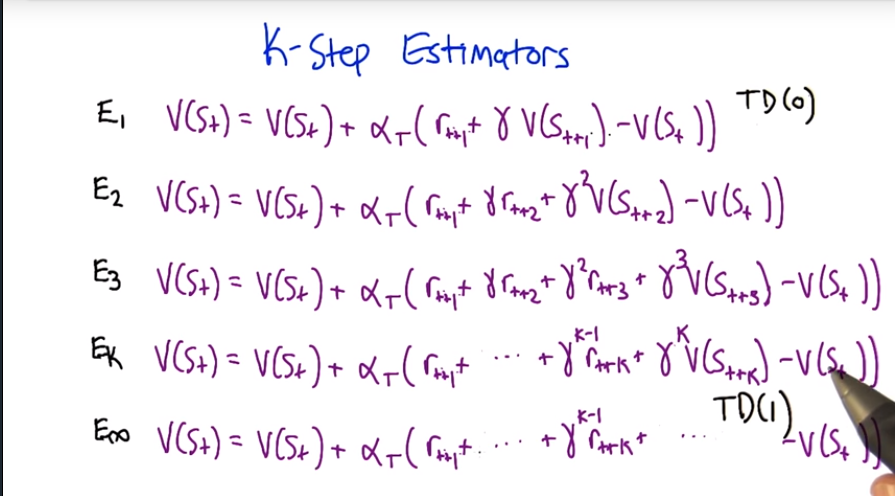 K-Step Estimators
E₁ V(Sₜ) = V(Sₜ) + α_T(rₜ₊₁ + γ V(Sₜ₊₁) - V(Sₜ)) TD(0)
E₂ V(Sₜ) = V(Sₜ) + α_T(rₜ₊₁ + γrₜ₊₂ + γ²V(Sₜ₊₂) - V(Sₜ))
E₃ V(Sₜ) = V(Sₜ) + α_T(rₜ₊₁ + γrₜ₊₂ + γ²rₜ₊₃ + γ³V(Sₜ₊₃) - V(Sₜ))
E_K V(Sₜ) = V(Sₜ) + α_T(rₜ₊₁ + ... + γ^{K-1} r_{t+K} + γ^K V(S_{t+K}) - V(Sₜ))
E∞ V(Sₜ) = V(Sₜ) + α_T(rₜ₊₁ + ... + γ^{K-1} r_{t+K} + ... - V(Sₜ)) TD(1)